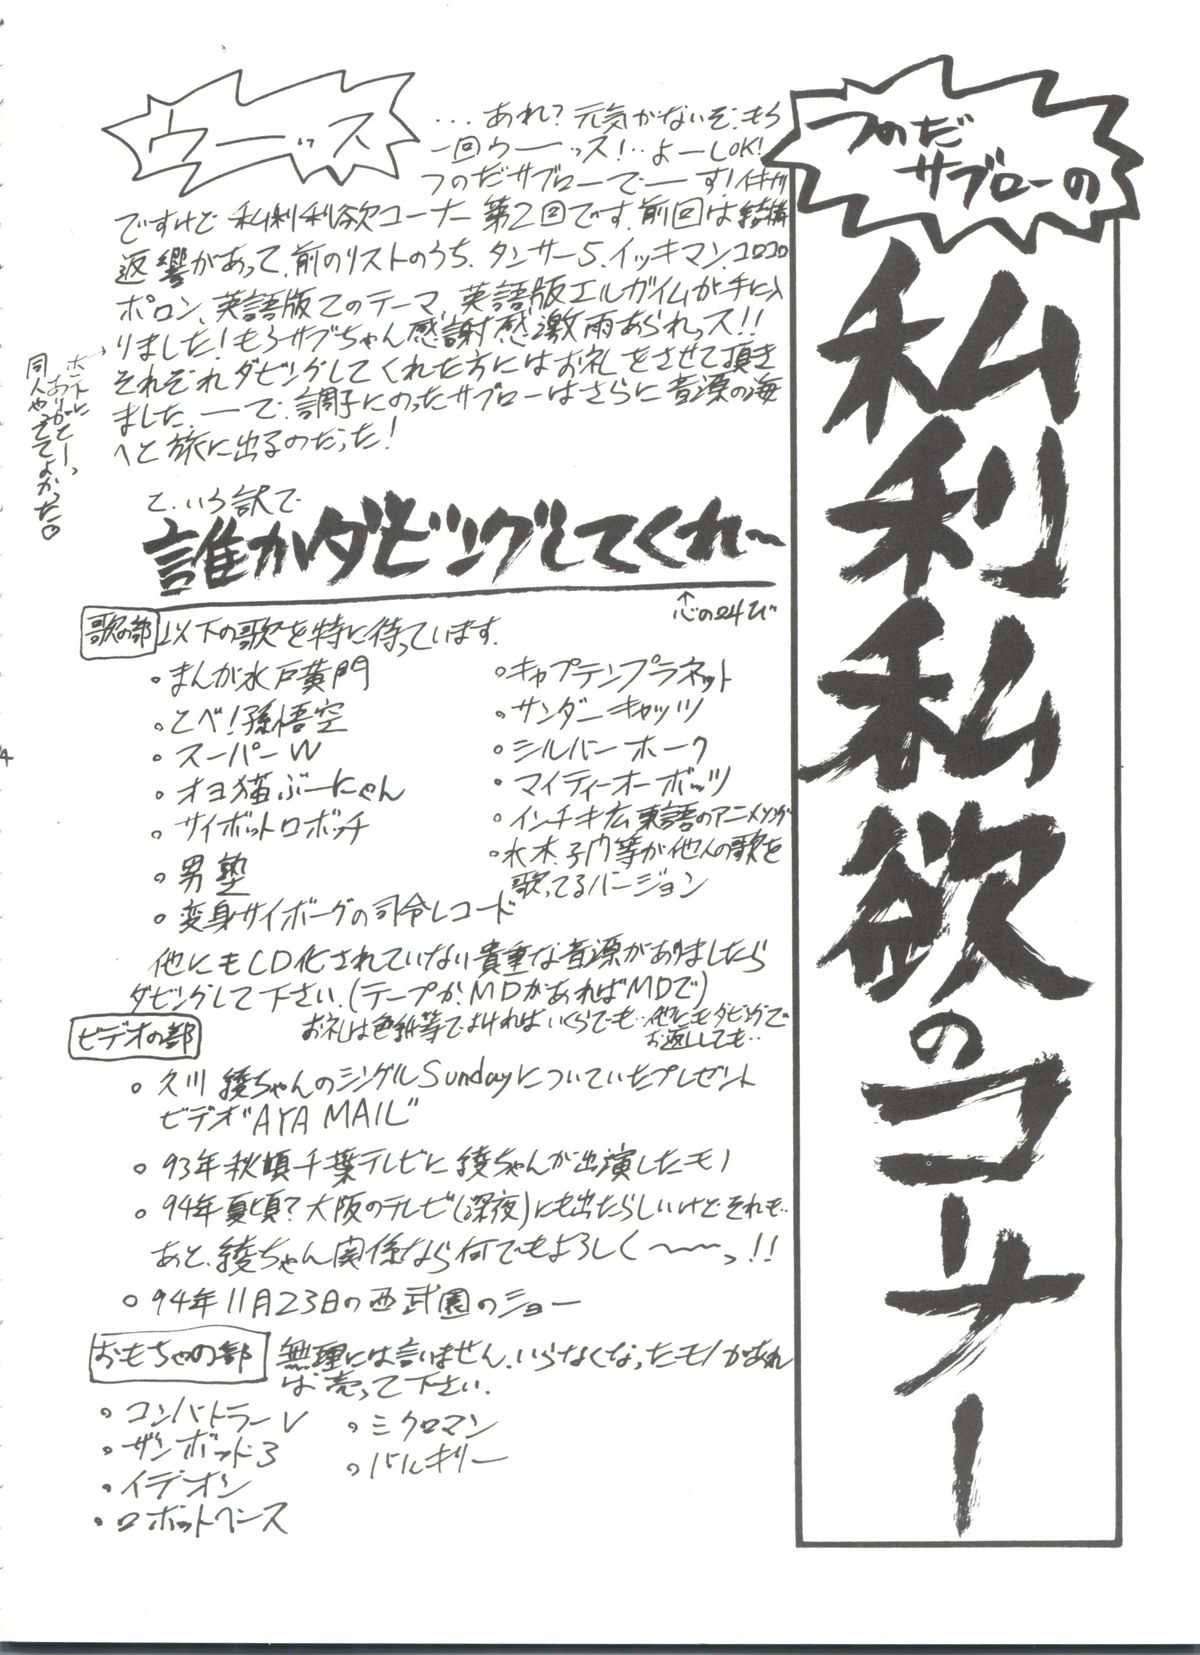 つのだ
サブローの
私利私欲のコーナー
ウーッス
・・・あれ?元気がないぞ。もう
一回ウーーッス!・・よーしOK!
つのだサブローでーーす!イキナリ
ですけど私利私欲コーナー第2回です。前回は結構
返響があって、前のリストのうち、タンサー5、イッキマン、コロコロ
ポロン、英語版Zのテーマ、英語版エルガイムが手に入
りました!もうサブちゃん感謝感激雨あられっス!!
それぞれダビングしてくれた方にはお礼をさせて頂き
ました。ーーで、調子にのったサブローはさらに音源の海
へと旅に出るのだった!
ホントに
ありがとーっ
同人やっててよかった。
と、いう訳で
誰かダビングしてくれ〜
↑心の叫び
歌の部 以下の歌を特に待っています。
・まんが水戸黄門
・とべ!孫悟空
・スーパーW
・オヨ猫ぶーにゃん
・サイボットロボッチ
・男塾
・変身サイボーグの司令レコード
・キャプテンプラネット
・サンダーキャッツ
・シルバーホーク
・マイティーオーボッツ
・インチキ広東語のアニメソング
・水木、子門等が他人の歌を
歌ってるバージョン
他にもCD化されていない貴重な音源がありましたら
ダビングして下さい。(テープか、MDがあればMDで)
お礼は色紙等でよければいくらでも・・他にもダビングで
お返ししても・・
ビデオの部
・久川綾ちゃんのシングルSundayについていたプレゼント
ビデオ"AYA MAIL"
・93年秋頃千葉テレビに綾ちゃんが出演したモノ
・94年夏頃?大阪のテレビ(深夜)にも出たらしいけどそれも・・
あと、綾ちゃん関係なら何でもよろしく〜〜っ!!
・94年11月23日の西武園のショー
おもちゃの部 無理には言いません。いらなくなったモノがあれ
ば売って下さい。
・コンバトラーV
・ザンボット3
・イデオン
・ロボットヘンス
・ミクロマン
・バルキリー
4